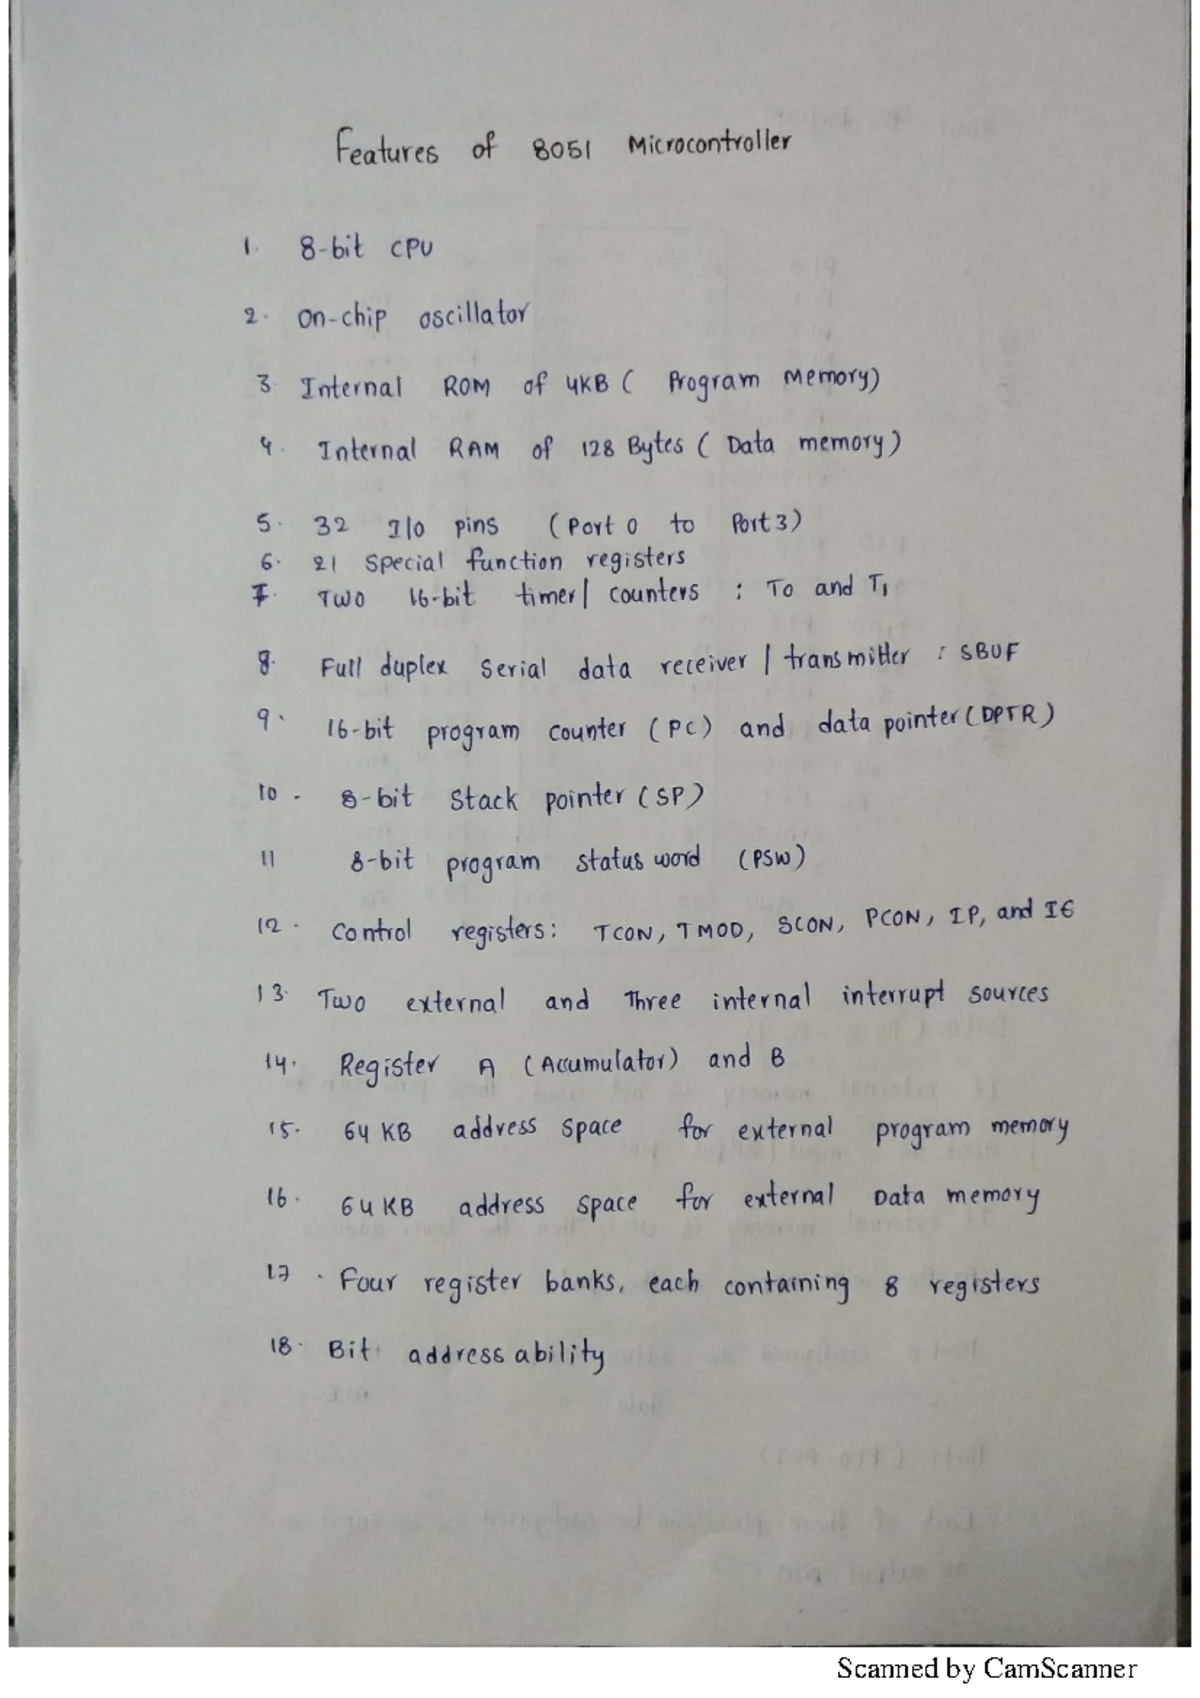 Features of 8051 Microcontroller
1. 8-bit CPU
2. On-chip oscillator
3. Internal ROM of 4KB ( Program Memory)
4. Internal RAM of 128 Bytes ( Data memory)
5. 32 I/O pins (Port 0 to Port 3)
6. 21 Special function registers
7. Two 16-bit timer/ counters : T0 and T1
8. Full duplex serial data receiver / transmitter : SBUF
9. 16-bit program counter (PC) and data pointer (DPTR)
10. 8-bit Stack pointer (SP)
11 8-bit program status word (PSW)
12. Control registers: TCON, TMOD, SCON, PCON, IP, and IE
13. Two external and Three internal interrupt sources
14. Register A (Accumulator) and B
15. 64 KB address space for external program memory
16. 64 KB address space for external Data memory
17. Four register banks, each containing 8 registers
18. Bit addressability
Scanned by CamScanner